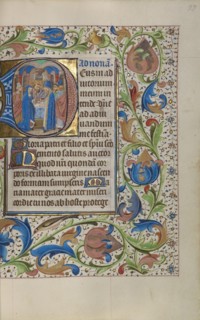 Ad nonā.
Deus in ad
iutorium
meum in
tende dn̄e
ad adiu
uandum
me festīa
Gloria patri et filio et spiri sc̄o
Memento salutis auctor
quod nr̄i quondā cor
poris ex illibata uirgine nascen
do formam sumpseris Ma
ria mater gracie mater miseri
cordie tu nos ab hoste protege